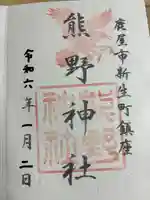 鹿屋市新生町鎮座
熊野神社
令和六年一月二日